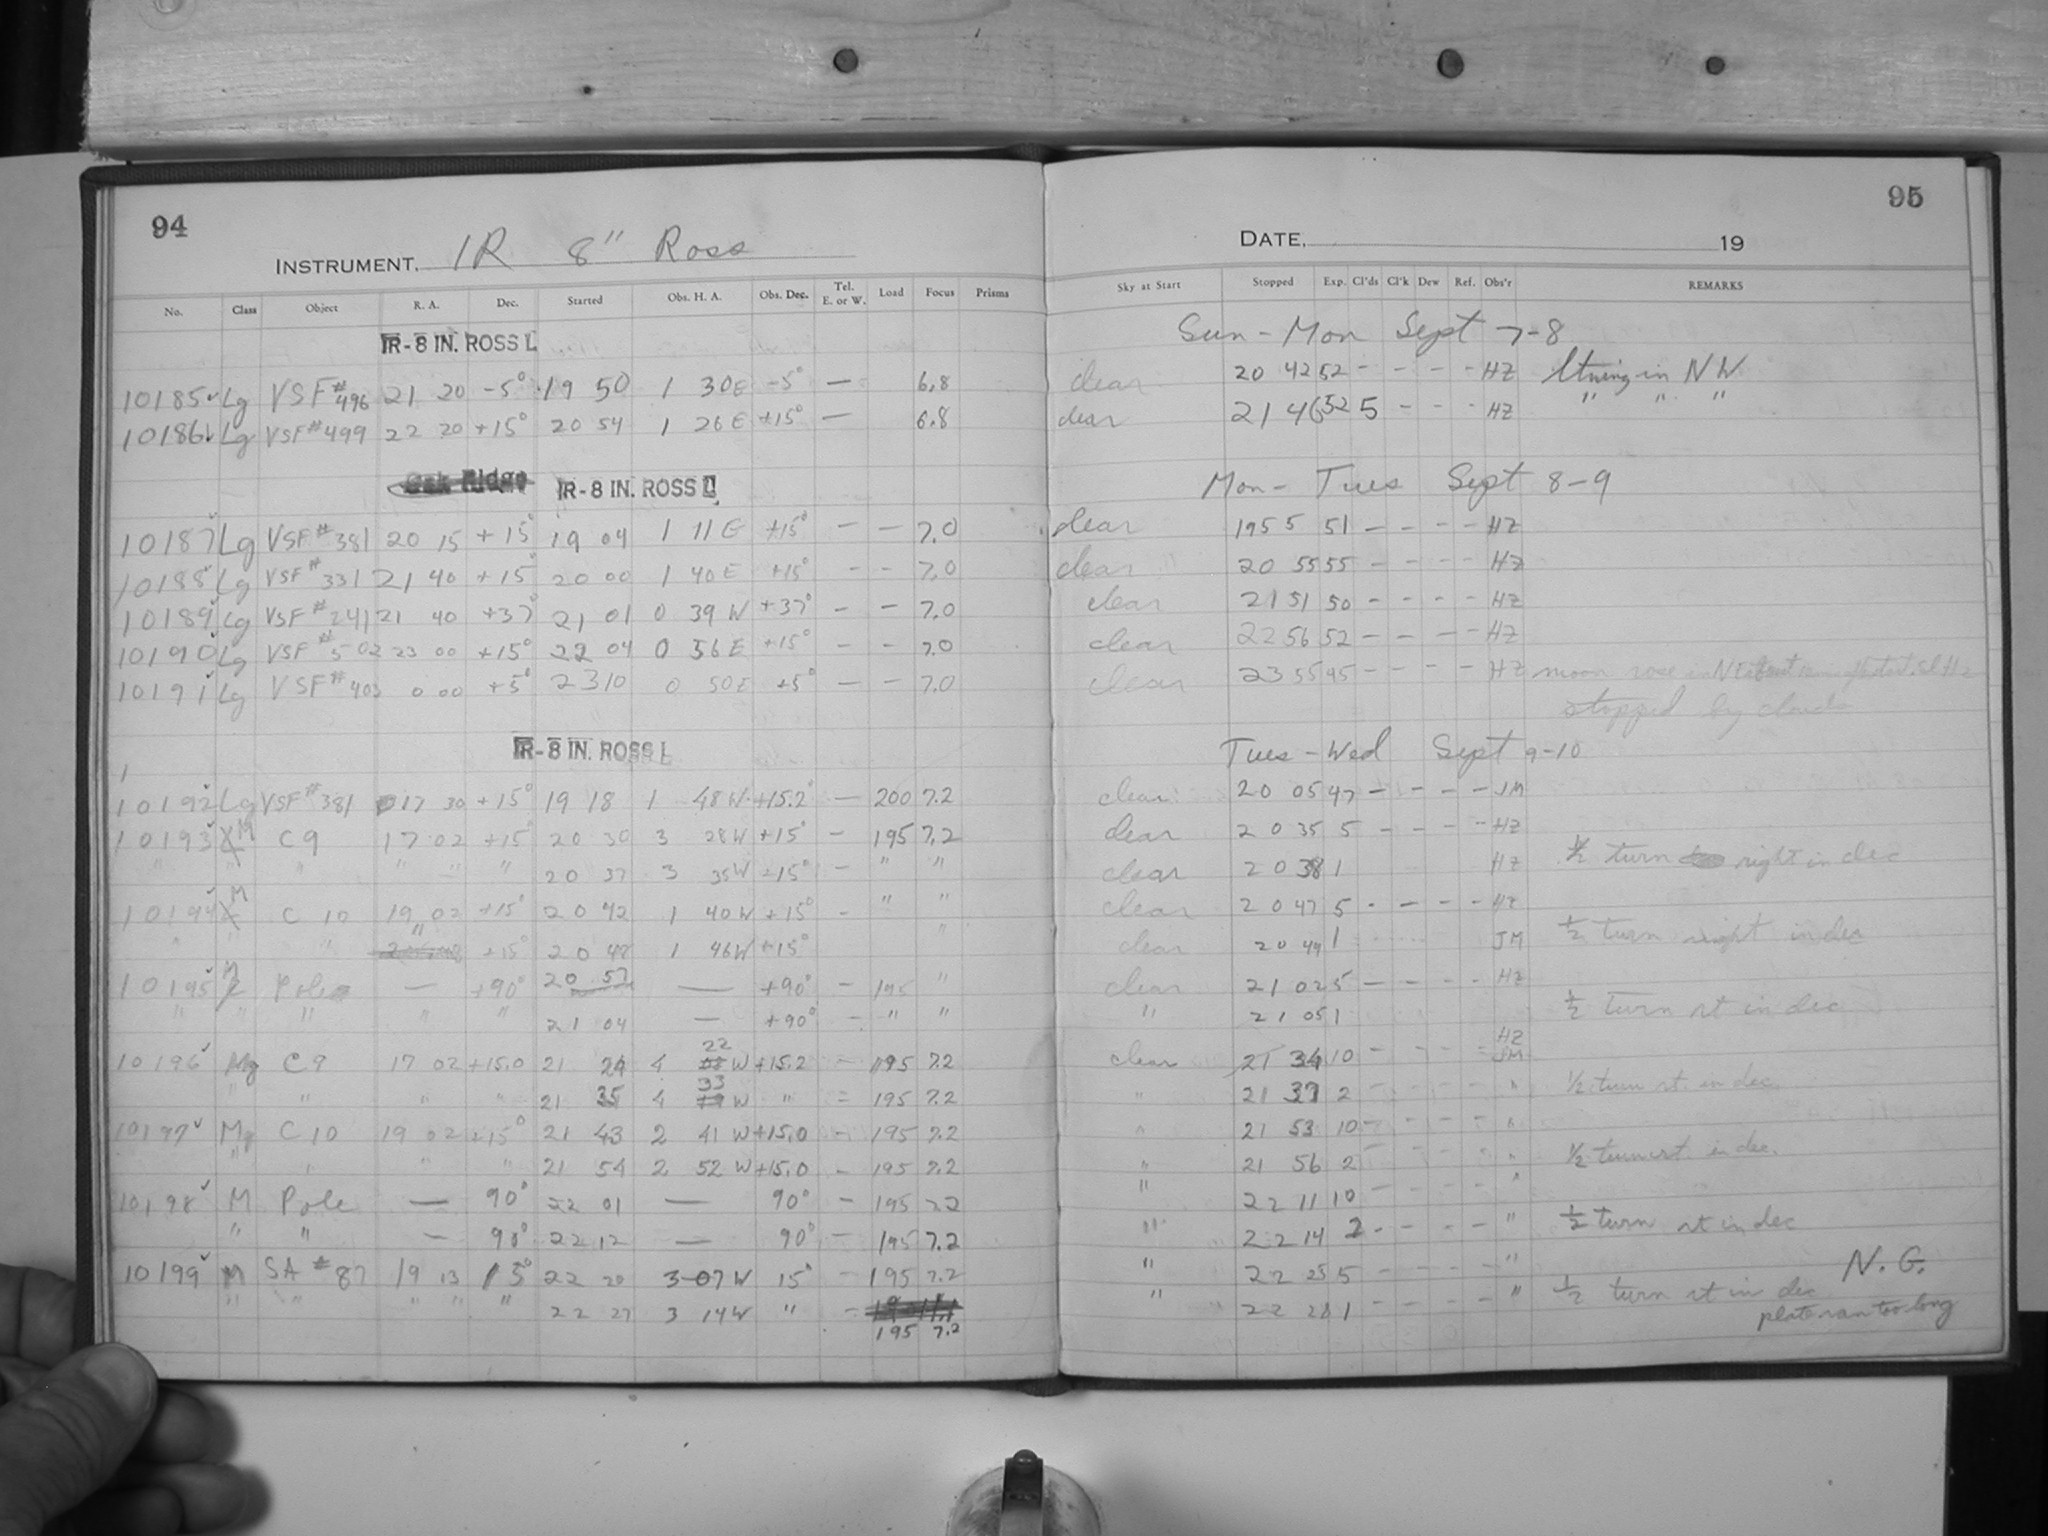 94
INSTRUMENT. IR 8" Ross
No. Class Object R. A. Dec. Started Obs. H. A. Obs. Dec. Tel. E. or W. Load Focus Prisms
IR-8 IN. ROSS L
10185 Lg VSF #496 21 20 -5° 19 50 1 30E -5° — 6.8
10186 Lg VSF #499 22 20 +15° 20 54 1 26E +15° — 6.8
Oak Ridge IR-8 IN. ROSS L
10187 Lg VSF #381 20 15 +15° 19 04 1 11E +15° — — 7.0
10188 Lg VSF #331 21 40 +15 20 00 1 40E +15° - - 7.0
10189 Lg VSF #241 21 40 +37° 21 01 0 39 W +37° - - 7.0
10190 Lg VSF #502 23 00 +15° 22 04 0 56E +15° - - 7.0
10191 Lg VSF #403 0 00 +5° 23 10 0 50E +5° — — 7.0
IR-8 IN. ROSS L
1
10192 Lg VSF #381 17 30 +15° 19 18 1 48W +15.2° — 200 7.2
10193 M C9 17 02 +15° 20 30 3 28W +15° - 195 7.2
" " " " " " 20 37 3 35W +15° - " "
10194 M C 10 19 02 +15° 20 42 1 40W +15° - " "
" " " " +15° 20 48 1 46W +15° "
10195 M Pole — +90° 20 57 — +90° - 195 "
" " " " " 21 04 — +90° - " "
10196 Mg C9 17 02 +15.0 21 24 4 22 W +15.2 - 195 7.2
" " " " 21 35 4 33 W " = 195 7.2
10197 Mg C10 19 02 +15° 21 43 2 41 W +15.0 - 195 7.2
" " " " 21 54 2 52 W +15.0 - 195 7.2
10198 M Pole — 90° 22 01 — 90° - 195 7.2
" " — 90° 22 12 — 90° - 195 7.2
10199 M SA #87 19 13 15° 22 20 3-07W 15° - 195 7.2
" " " " " 22 27 3 14W " -
195 7.2
95
DATE, 19
Sky at Start Stopped Exp. Cl'ds Cl'k Dew Ref. Obs'r REMARKS
Sun - Mon Sept 7-8
clear 20 42 52 - - - - HZ ltning in NW
clear 21 46 52 5 - - - HZ " " "
Mon - Tues Sept 8-9
clear 19 55 51 - - - - HZ
clear 20 55 55 - - - - HZ
clear 21 51 50 - - - - HZ
clear 22 56 52 - - - - HZ
clear 23 55 45 - - - - HZ moon rose in NE
stopped by clouds
Tues - Wed Sept 9-10
clear 20 05 47 - - - - JM
clear 20 35 5 - - - - HZ
clear 20 38 1 HZ ½ turn right in dec
clear 20 47 5 - - - - HZ
clear 20 49 1 JM ½ turn right in dec
clear 21 02 5 - - - - HZ
" 21 05 1 ½ turn rt in dec
clear 21 34 10 - - - - HZ JM
" 21 37 2 - - - - " ½ turn rt. in dec.
" 21 53 10 - - - - "
" 21 56 2 - - - - " ½ turn rt. in dec.
" 22 11 10 - - - - "
" 22 14 2 - - - - " ½ turn rt in dec
" 22 25 5 - - - - " N.G.
" 22 28 1 - - - - " ½ turn rt in dec
plate ran too long